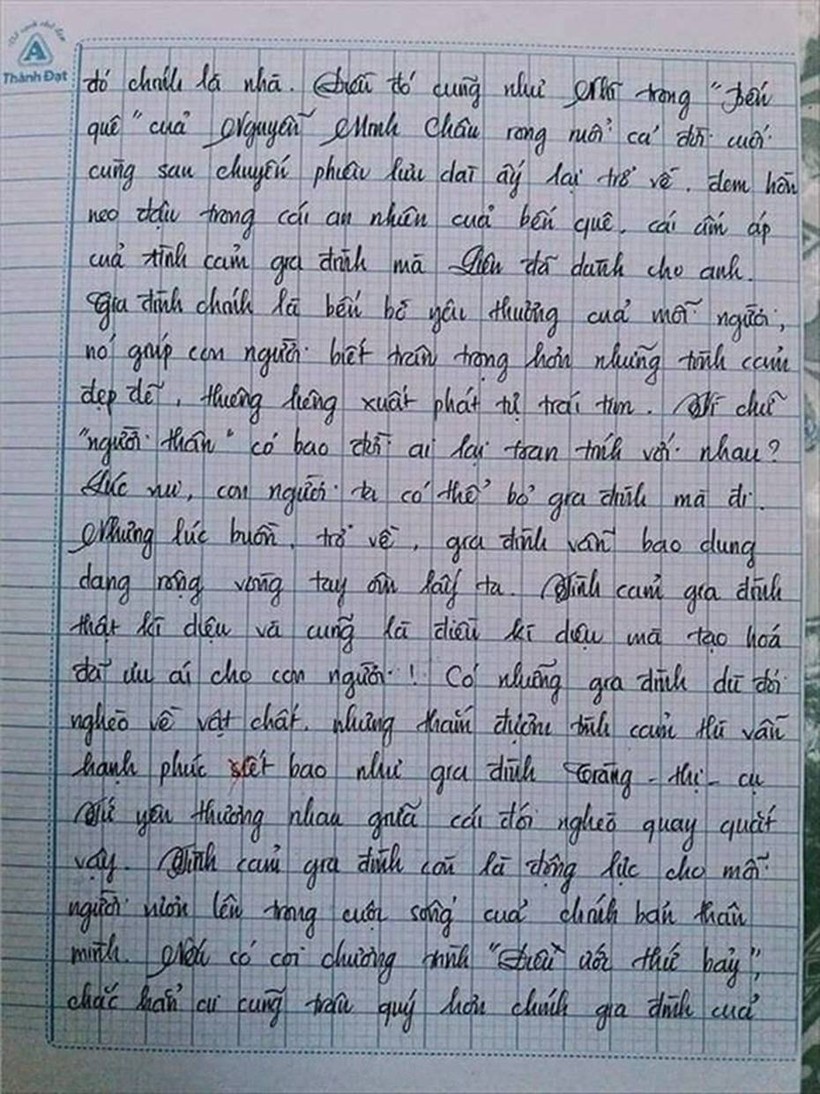 Thành Đạt
đó chính là nhà. Điều đó cũng như Nhĩ trong "Bến
quê" của Nguyễn Minh Châu rong ruổi cả đời cuối
cùng sau chuyến phiêu lưu dài ấy lại trở về, đem hồn
neo đậu trong cái an nhiên của bến quê, cái ấm áp
của tình cảm gia đình mà Liên đã dành cho anh.
Gia đình chính là bến bờ yêu thương của mỗi người,
nó giúp con người biết trân trọng hơn những tình cảm
đẹp đẽ, thiêng liêng xuất phát từ trái tim. Vì chữ
"người thân" có bao đời ai lại toan tính với nhau?
Lúc vui, con người ta có thể bỏ gia đình mà đi.
Nhưng lúc buồn, trở về, gia đình vẫn bao dung
dang rộng vòng tay ôm lấy ta. Tình cảm gia đình
thật kì diệu và cũng là điều kì diệu mà tạo hoá
đã ưu ái cho con người! Có những gia đình dù đói
nghèo về vật chất, nhưng thắm đượm tình cảm thì vẫn
hạnh phúc xiết bao như gia đình Tràng - thị - cụ
Tứ yêu thương nhau giữa cái đói nghèo quay quắt
vậy. Tình cảm gia đình còn là động lực cho mỗi
người vươn lên trong cuộc sống của chính bản thân
mình. Nếu có coi chương trình "Điều ước thứ bảy",
chắc hẳn cư cũng trân quý hơn chính gia đình của